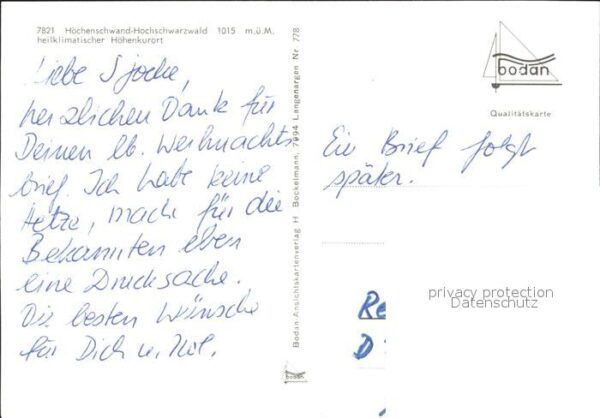 7821 Höchenschwand-Hochschwarzwald 1015 m.ü.M.
heilklimatischer Höhenkurort
Liebe
herzlichen Dank für
Deinen lb. Weihnachts
brief. Ich habe keine
mach für die
Bekannten eben
eine Drucksache.
Die besten Wünsche
für Dich u.
Bodan-Ansichtskartenverlag H Bockelmann, 7994 Langenargen Nr 778
bodan
bodan
Qualitätskarte
Ein Brief folgt
später.
privacy protection
Datenschutz
Re
D